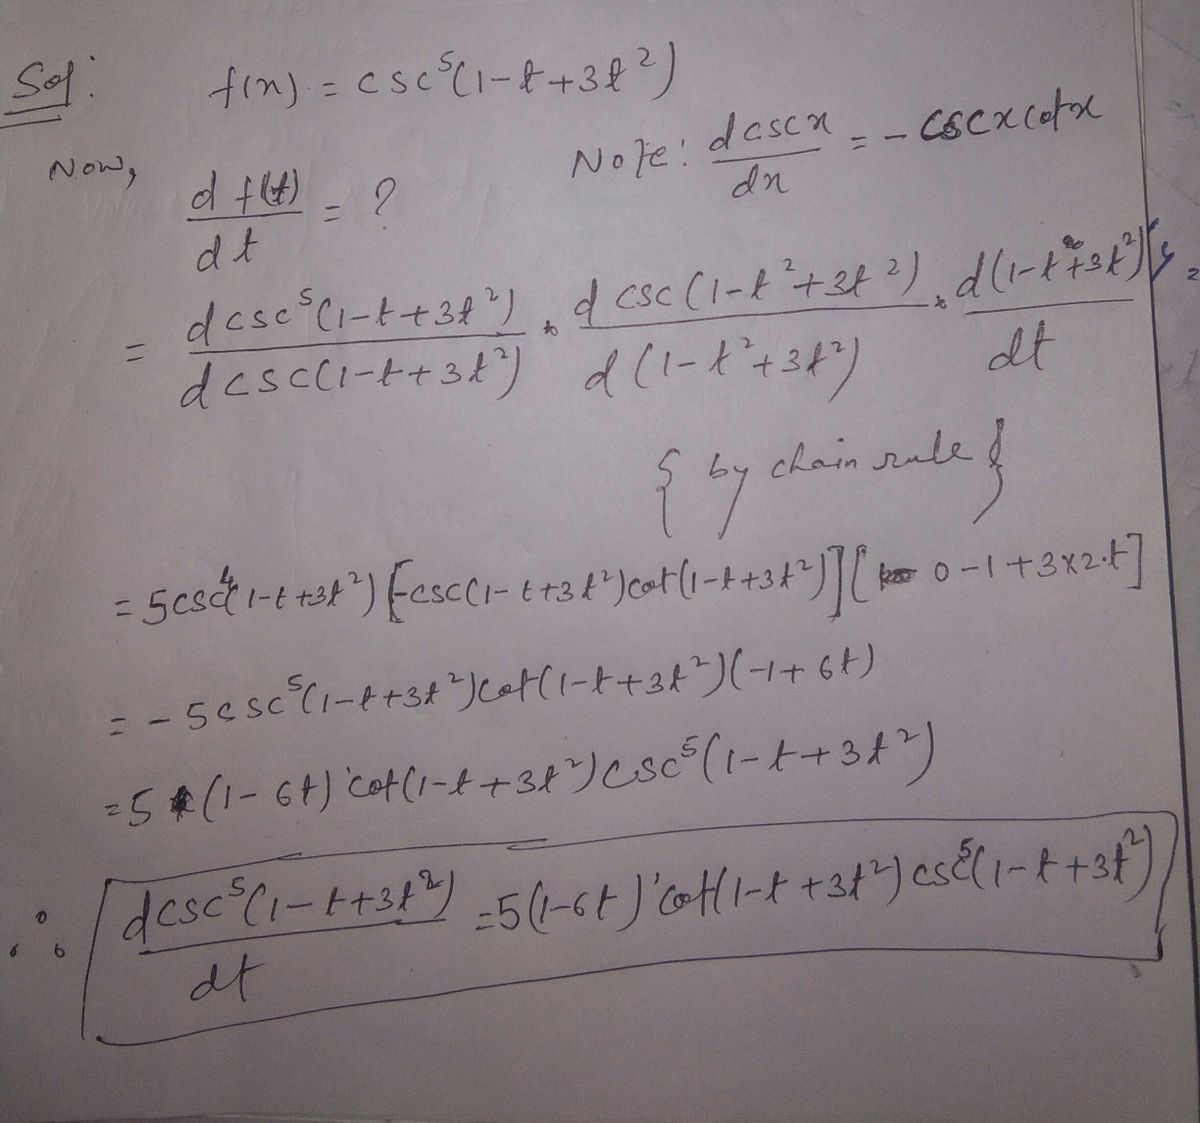 Sol:
f(x) = csc⁵(1-t+3t²)
Now,
d f(t)/dt = ?
Note: d cscx/dx = - cscx cotx
= d csc⁵(1-t+3t²)/d csc(1-t+3t²) * d csc(1-t²+3t²)/d(1-t²+3t²) * d(1-t+3t²)/dt
{ by chain rule }
= 5csc⁴(1-t+3t²) [-csc(1-t+3t²)cot(1-t+3t²)] [0-1+3x2.t]
= - 5csc⁵(1-t+3t²)cot(1-t+3t²)(-1+6t)
=5 (1-6t) cot(1-t+3t²)csc⁵(1-t+3t²)
∴ d csc⁵(1-t+3t²)/dt =5(1-6t) cot(1-t+3t²) csc⁵(1-t+3t²)